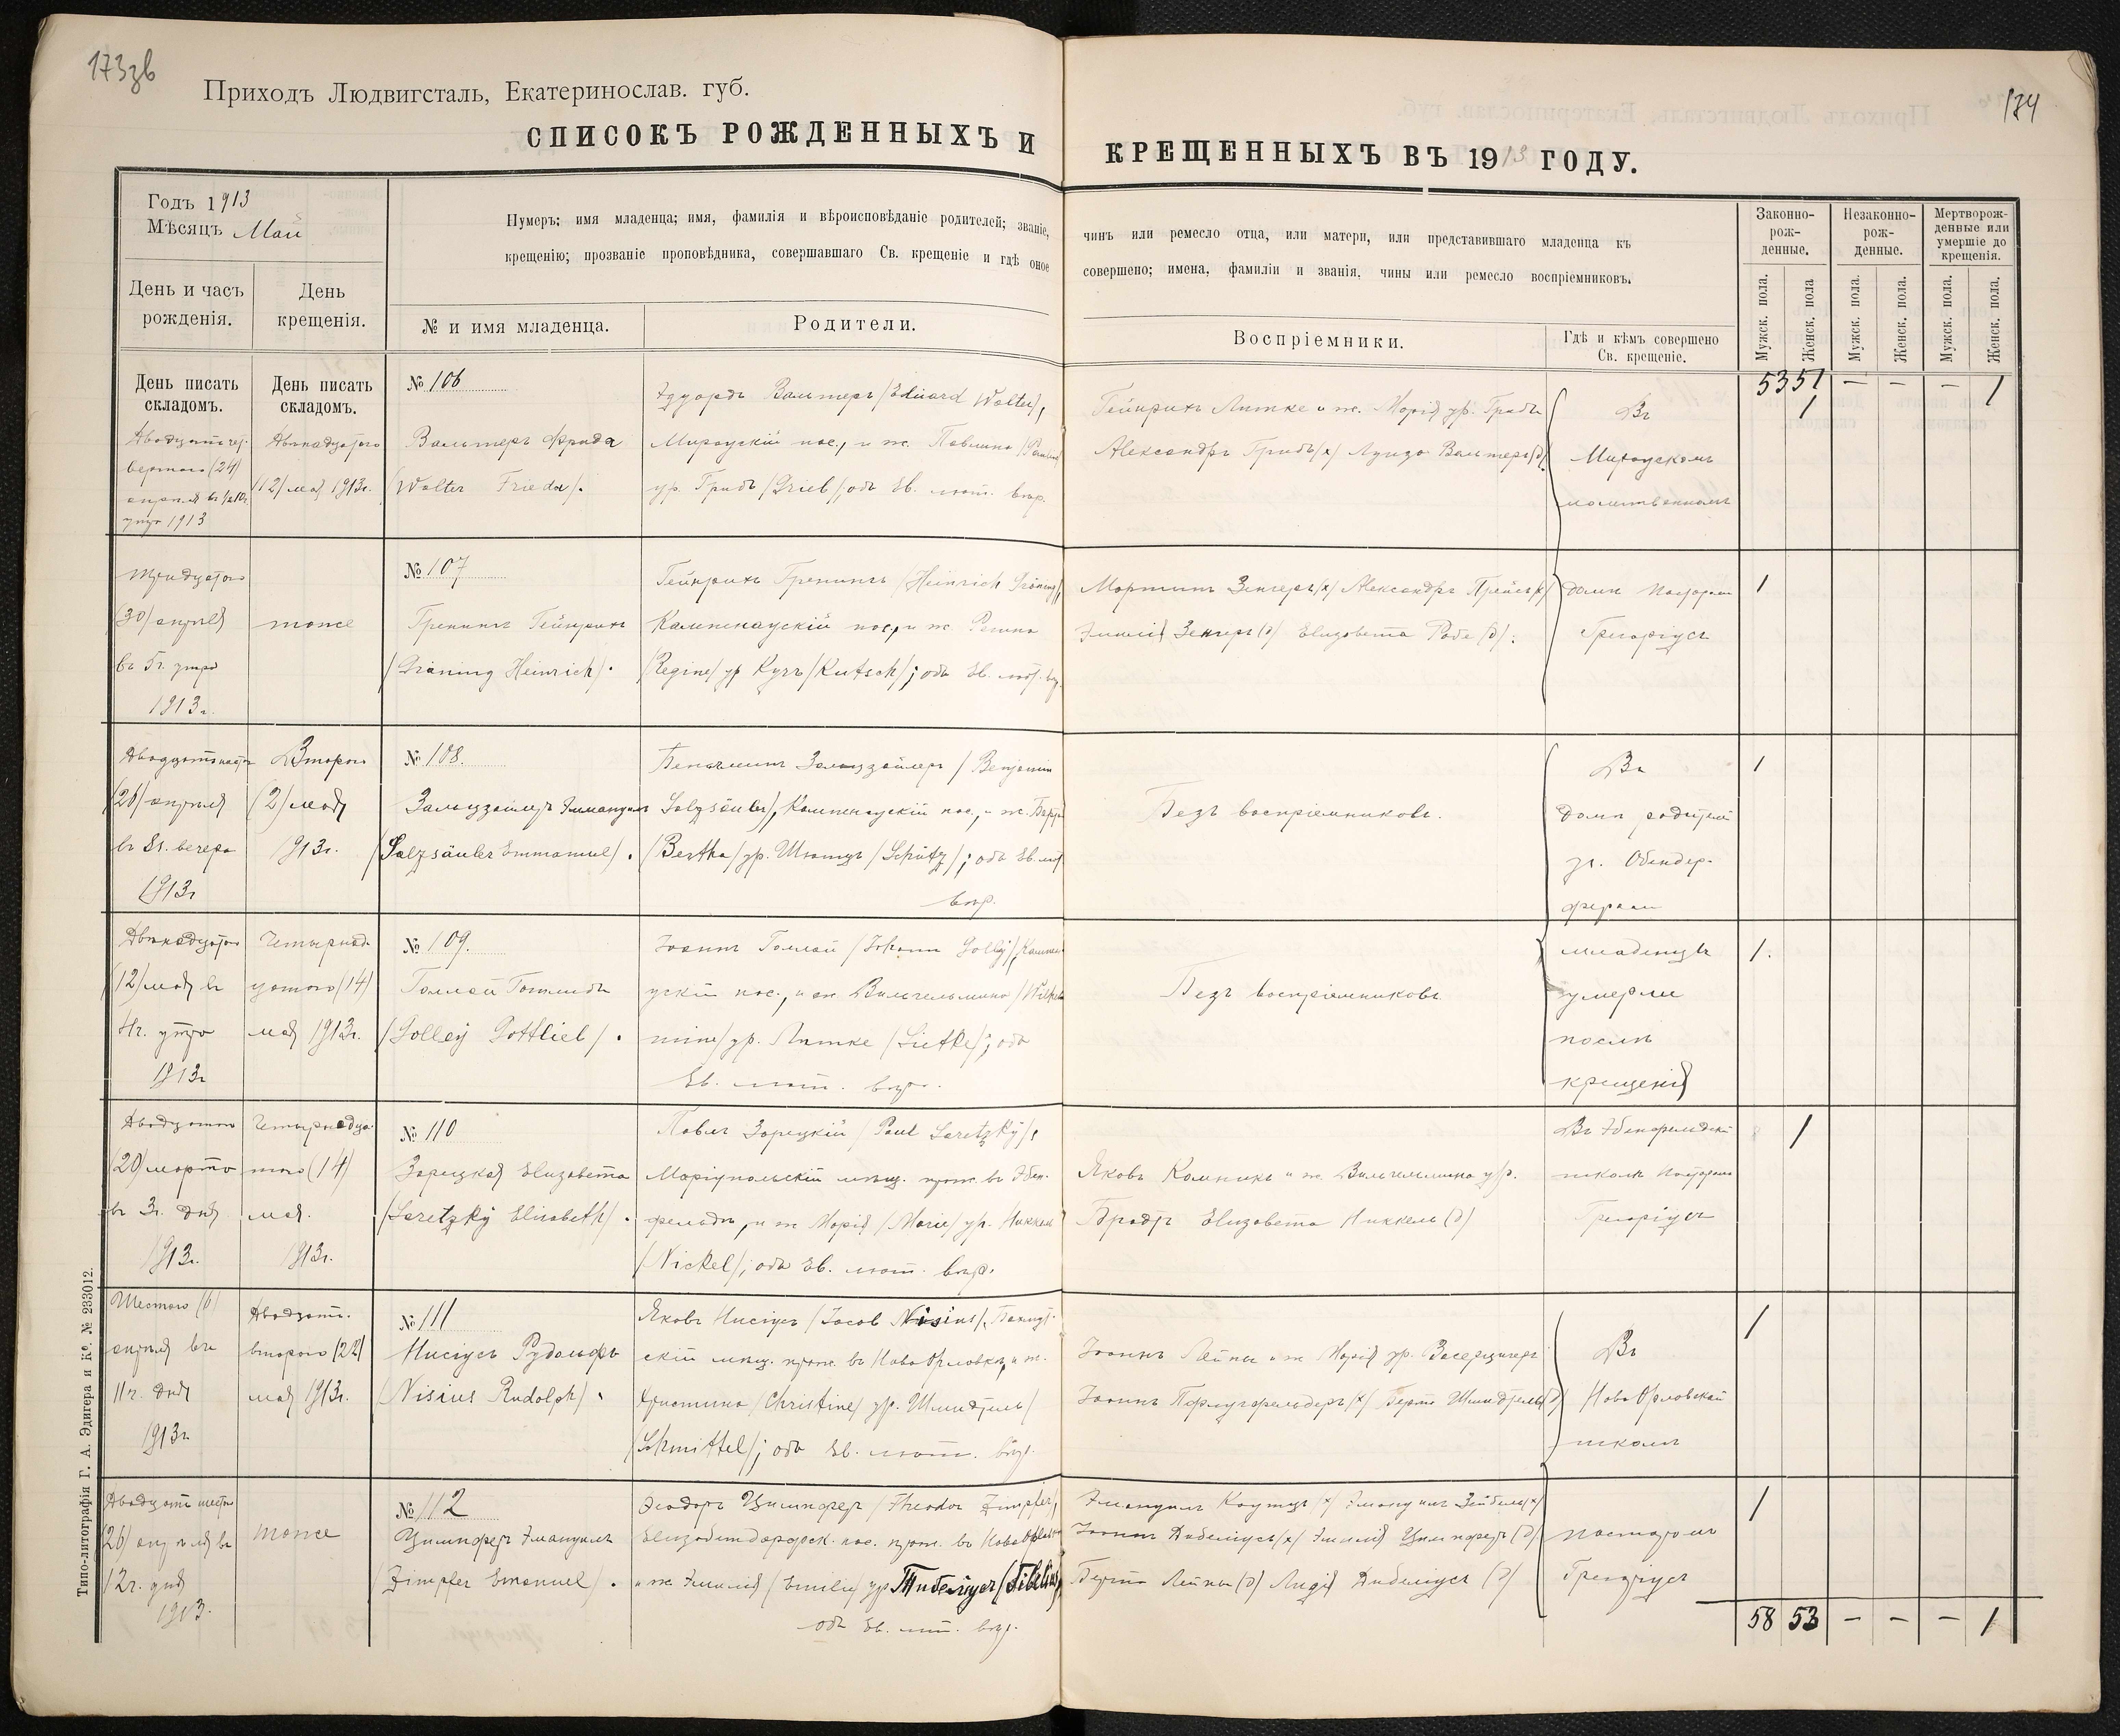 173зв
174
Приходъ Людвигсталь, Екатеринослав. губ.
СПИСОКЪ РОЖДЕННЫХЪ И КРЕЩЕННЫХЪ ВЪ 1913 ГОДУ.
Годъ 1913
Мѣсяцъ Май
Нумеръ; имя младенца; имя, фамилія и вѣроисповѣданіе родителей; званіе, чинъ или ремесло отца, или матери, или представившаго младенца къ
крещенію; прозваніе проповѣдника, совершавшаго Св. крещеніе и гдѣ оное совершено; имена, фамиліи и званія, чины или ремесло воспріемниковъ.
День и часъ рожденія.
День крещенія.
№ и имя младенца.
Родители.
Воспріемники.
Гдѣ и кѣмъ совершено Св. крещеніе.
Законно-рож-денные.
Незаконно-рож-денные.
Мертворож-денные или умершіе до крещенія.
Мужск. пола. Женск. пола Мужск. пола. Женск. пола. Мужск. пола. Женск. пола.
53 51 — — — 1
День писать складомъ.
День писать складомъ.
Двадцать чет-
вертого (24)
утра 1913
Двѣнадцатого
(12) мая 1913г.
№ 106
Вальтеръ Фрида
(Walter Frieda).
Эдуардъ Вальтеръ (Eduard Walter),
ур. Грибъ (Grieb), оба Ев. лют. вѣр.
Гейнрихъ Литке и ж. Марія ур. Грибъ
Александръ Грибъ (х) Луиза Вальтеръ (д).
Въ
молитвенномъ
1
Тридцатого
(30) апрѣля
въ 5г. утра
1913г.
тоже
№ 107
Гренингъ Гейнрихъ
(Gräning Heinrich).
Гейнрихъ Гренингъ (Heinrich Gräning),
Кампенауский пос., и ж. Регина
(Regine) ур Кучъ (Kutsch); оба Ев. лют. вѣр.
Мартинъ Зенгеръ (х) Александръ Прейсъ (х)
Эмилія Зенгеръ (д) Елизовета Роде (д).
домѣ Пасторомъ
Грегоріусъ
1
(26) апрѣля
въ 8г. вечера
1913г
Второго
(2) мая
1913г.
№ 108.
Зальцзайлеръ Эммануилъ
(Salzsäuler Emmanuel).
Беньяминъ Зальцзайлеръ (Benjamin
Salzsäuler), Кампенауский пос., и ж. Берта
(Bertha) ур. Шютцъ (Schütz); оба Ев. лют
вѣр.
Безъ воспріемниковъ.
Въ
домѣ родителей
1
Двѣнадцатого
(12) мая въ
4г. утра
1913г
Четырнад-
цатого (14)
мая 1913г.
№ 109.
Голлай Готлибъ
(Golley Gottlieb).
Іоаннъ Голлай (Johann Golley), Кампен-
ауский пос., и ж. Вильгельмина (Wilhel
mine) ур. Литке (Lietke); оба
Ев. лют. вѣр.
Безъ воспріемниковъ.
младенцы
умерли
послѣ
крещенія
1.
Двадцатого
(20) марта
въ 3г. дня
1913г.
Четырнадца-
того (14)
мая.
1913г.
№ 110
Зарецкая Елизовета
(Saretzky Elisabeth).
Павлъ Зарецкій (Paul Saretzky),
Маріупольскій мѣщ. прож. въ Эбен-
фельдѣ, и ж Марія (Marie) ур. Никкель
(Nickel); оба Ев. лют. вѣр.
Яковъ Комникъ и ж. Вильгельмина ур.
Елизовета Никкель (д)
Въ Эбенфельдской
школѣ Пасторомъ
Грегоріусъ
1
Шестого (6)
апрѣля въ
11г. дня
1913г
Двадцать
второго (22)
мая 1913г.
№ 111
Нисіусъ Рудольфъ
(Nisius Rudolph).
Яковъ Нисіусъ (Jacob Nisius), Бахмут-
скій мѣщ. прож. въ НовоОрловкѣ, и ж.
Христина (Christine) ур. Шмидтель
(Schmittel); оба Ев. лют. вѣр.
Берта Шмидтель (д)
Въ
НовоОрловской
школѣ
1
Двадцать шестого
(26) апрѣля въ
12г. дня
1913.
тоже
№ 112
Цимпферъ Эмануилъ
(Zimpfer Emanuel).
Теодоръ Цимпферъ (Theodor Zimpfer),
Елизабетдорфск. пос. прож. въ НовоОрловкѣ
и ж. Эмилія (Emilie) ур. Тибеліусъ (Tibelius),
оба Ев. лют. вѣр.
Эмануилъ Каутцъ (х) Эмануилъ Зейбель (х)
Іоаннъ Дибеліусъ (х) Эмилія Цимпферъ (д)
Берта Лейпы (д) Лидія Дибеліусъ (д)
пасторомъ
Грегоріусъ
1
58 53 — — — 1
Типо-литографія Г. А. Эдигера и Ко. № 233012.